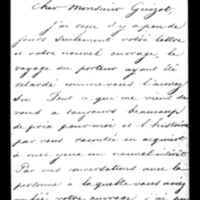 Cher Monsieur Guizot,
j'ai reçu il y a peu de
jours seulement votre lettre
et votre nouvel ouvrage, le
voyage du porteur ayant été
retardé comme vous l'aurez
su. Tout ce que me vient de
vous a toujours beaucoup
de prix pour moi et l'histoire
par vous racontée en acquiert
à mes yeux un nouvel intérêt.
Par mes conversations avec la
personne à laquelle vous aviez
votre ouvrage j'ai pu